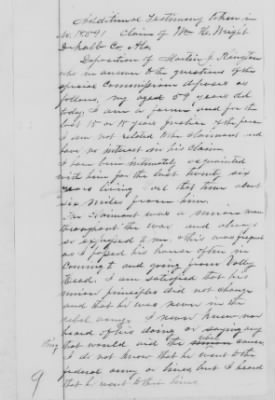 Additional Testimony taken in
No. 18091 Claim of Wm H. Wright
DeKalb Co, Ala
Deposition of Martin J.
who in answer to the questions of the
special Commissioner deposes as
follows, my age is 59 years old
today. I am a farmer and for the
last 15 or 18 years Justice of the peace
I am not related to the claimant and
have no interest in his claim
I have been intimately acquainted
with him for the last twenty six
years living all that time about
six miles from him.
The claimant was a union man
throughout the war and always
so expressed to me. This was frequent
as I passed his house often in
coming to and going from Valley
Head. I am satisfied that his
union principles did not change
and that he was never in the
rebel army. I never knew nor
heard of his doing or saying any
thing that would aid the rebel cause
I do not know that he went to the
federal army or lines but I heard
that he went to their lines
9